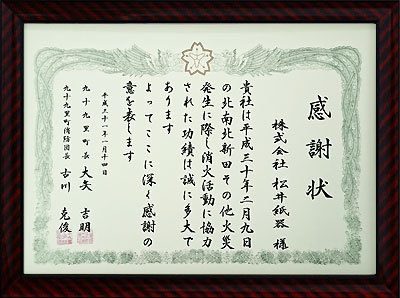 感謝状
株式会社 松井紙器 様
貴社は平成三十年二月九日
の北南北新田その他火災
発生に際し消火活動に協力
された功績は誠に多大で
あります
よってここに深く感謝の
意を表します
平成三十一年一月十四日
九十九里町長 大矢 吉明
九十九里町消防団長 古川 克俊